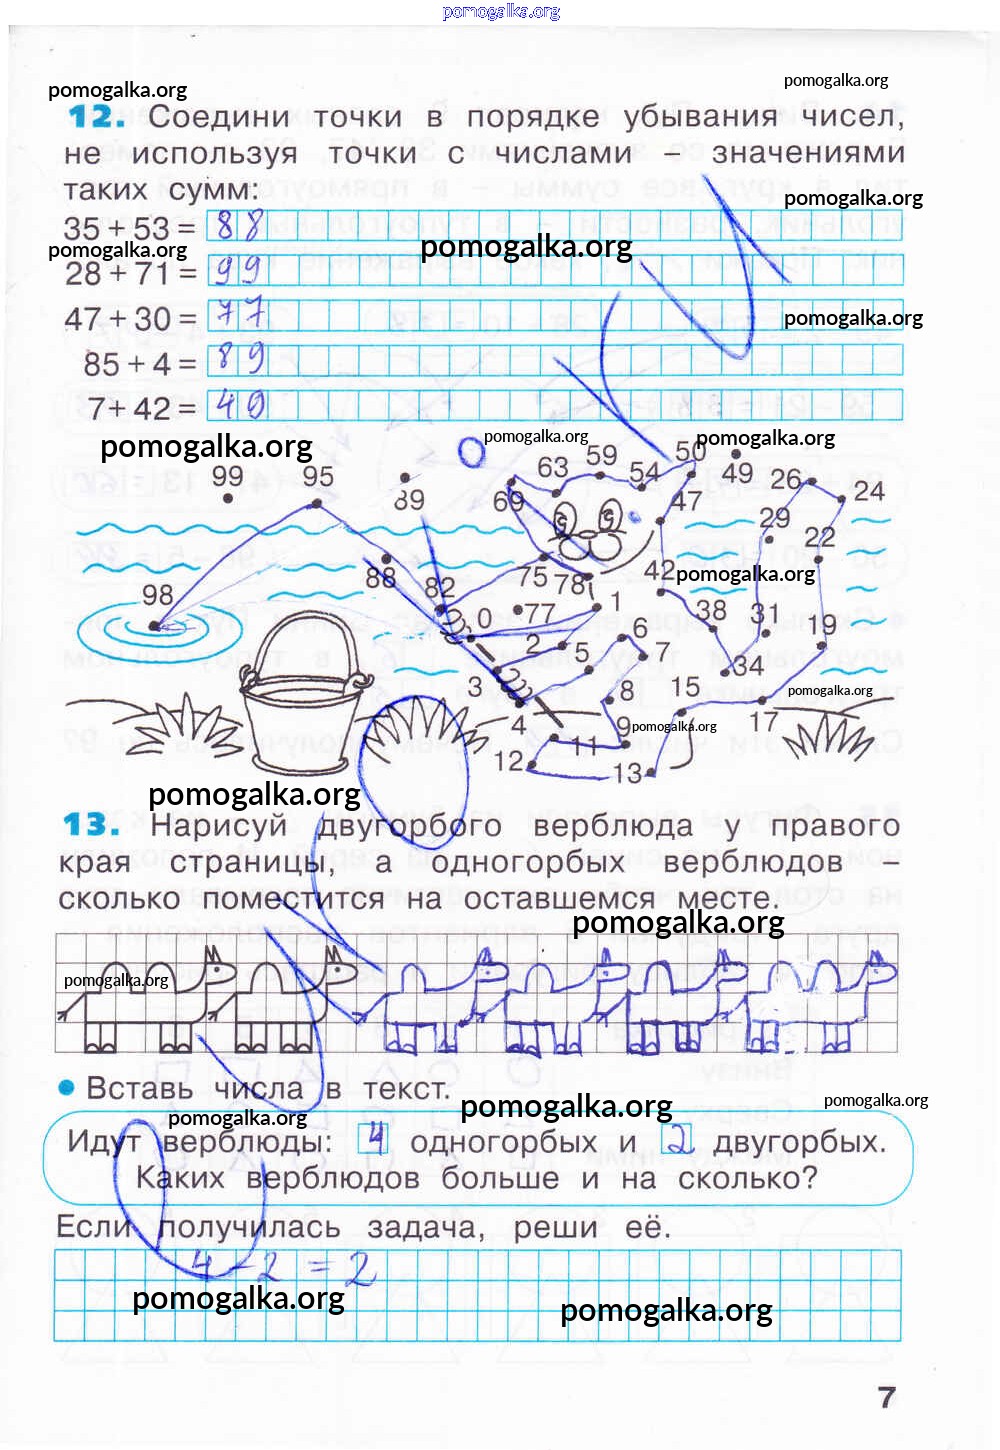 pomogalka.org
pomogalka.org
pomogalka.org
12. Соедини точки в порядке убывания чисел,
не используя точки с числами – значениями
таких сумм:
pomogalka.org
35 + 53 = 88
pomogalka.org
pomogalka.org
28 + 71 = 99
47 + 30 = 77
pomogalka.org
85 + 4 = 89
7 + 42 = 49
pomogalka.org
pomogalka.org
pomogalka.org
99 95 89 69 63 59 54 50 49 47 26 24
98 88 82 75 78 42 29 22
pomogalka.org
0 77 1 2 5 6 7 38 31 34 19
3 4 8 9 11 12 13 15 17
pomogalka.org
pomogalka.org
pomogalka.org
13. Нарисуй двугорбого верблюда у правого
края страницы, а одногорбых верблюдов –
сколько поместится на оставшемся месте.
pomogalka.org
pomogalka.org
• Вставь числа в текст.
pomogalka.org
pomogalka.org
pomogalka.org
Идут верблюды: 4 одногорбых и 2 двугорбых.
Каких верблюдов больше и на сколько?
Если получилась задача, реши её.
4 – 2 = 2
pomogalka.org
pomogalka.org
7